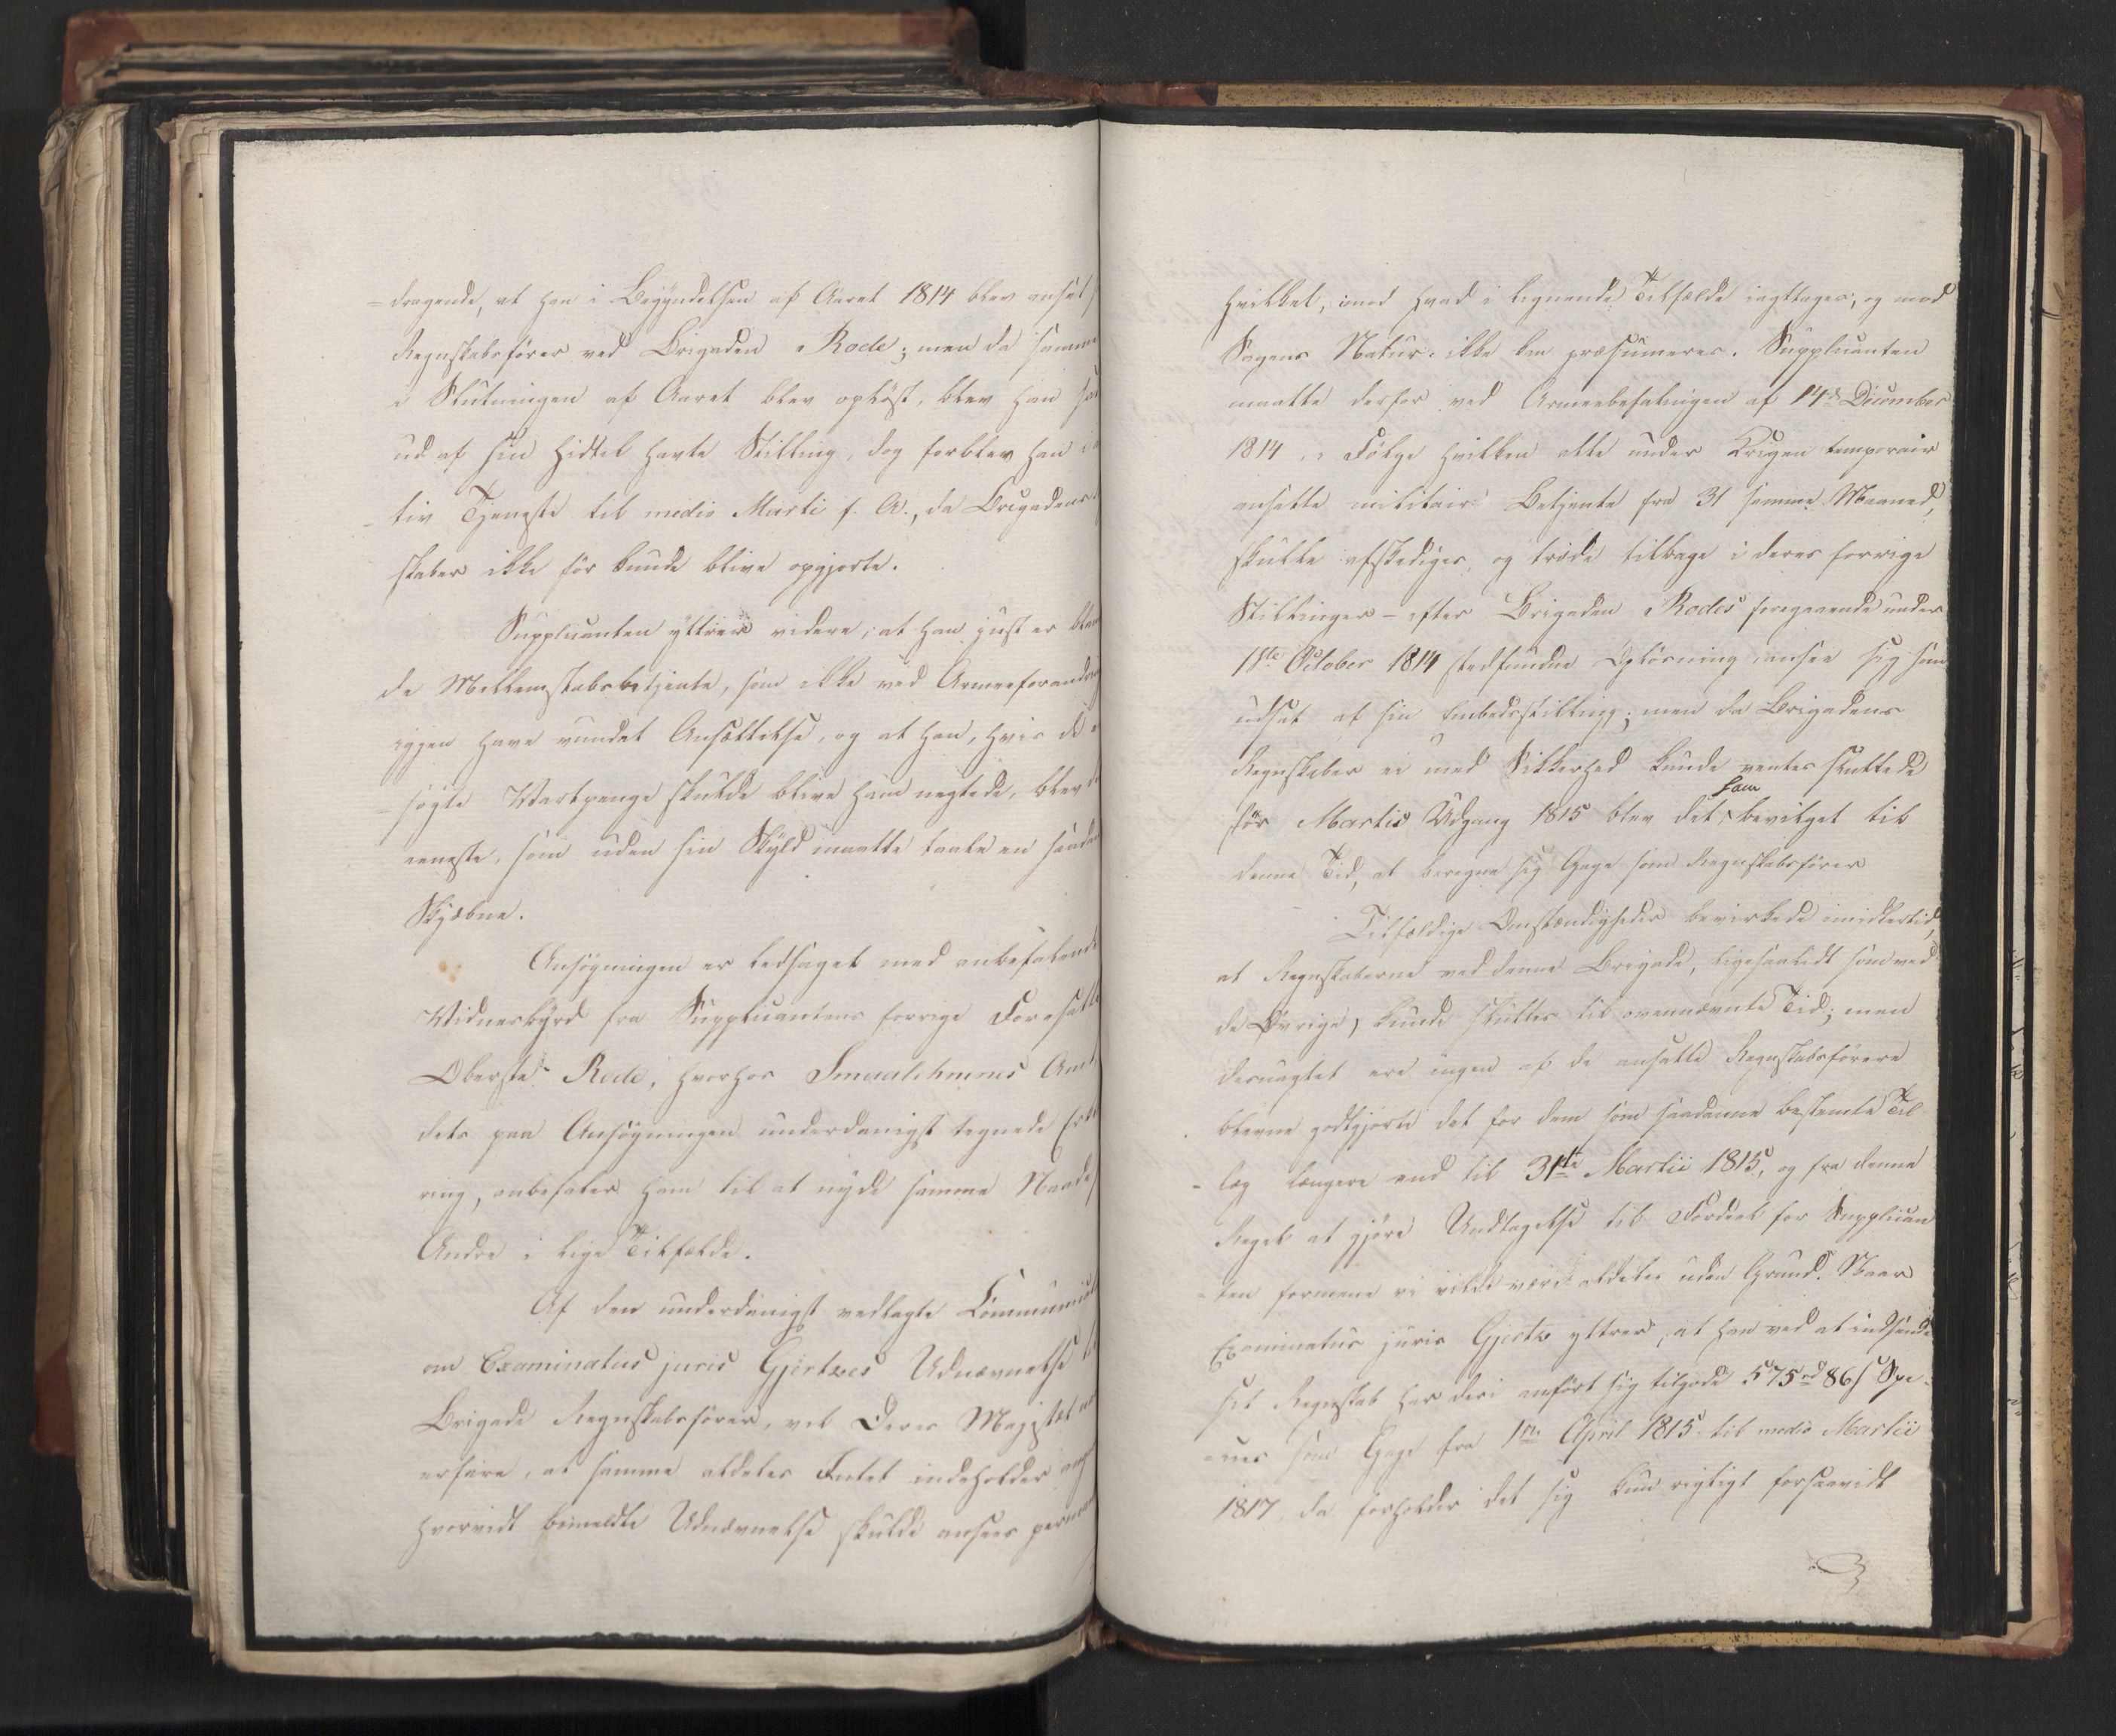 -dragende, at han i Begyndelsen af Aaret 1814 blev ansat
Regnskabsfører ved Brigaden Rode; men da samme
i Slutningen af Aaret blev opløst, blev han
ud af sin hidtil havte Stilling, dog forblev han i
-tiv Tjeneste til medio Marti f. A., da Brigadens
skaber ikke før kunde blive opgjorte.
Supplicanten yttrer videre, at han just er
de Mellemstabsbetjente, som ikke ved Armeeforand
ingen have vundet Ansættelse, og at han, hvis de
-søgte Vartpenge skulde blive ham negtede, blev
eeneste, som uden sin Skyld maatte taale en saadan
Skjæbne.
Ansøgningen er ledsaget med anbefalende
Vidnesbyrd fra Supplicantens forrige Foresatte
Oberste Rode, hvorhos Smaalehnenes Amt
dets paa Ansøgningen underdanigst tegnede Erklæ
ring, anbefaler ham til at nyde samme Naade
Andre i lige Tilfælde.
Af den underdanigst vedlagte Communicat
om Examinatus juris Gjertzes Udnævnelse til
Brigade Regnskabsfører, vil Deres Majestæt
erfare, at samme aldeles Intet indeholder
hvorvidt bemeldte Udnævnelse skulde ansees perm
hvilket, imod hvad i lignende Tilfælde iagttages, og mod
Sagens Natur ikke kan præsumeres. Supplicanten
maatte derfor ved Armeebefalingen af 14de December
1814, i Følge hvilken alle under Krigen temporair
ansatte militaire Betjente fra 31 samme Maaned,
skulle afskediges, og træde tilbage i deres forrige
Stillinger - efter Brigaden Rodes foregaaende under
18de October 1814 stedfundne Opløsning, ansee sig som
udsat af sin Embedsstilling; men da Brigadens
Regnskaber ei med Sikkerhed kunde ventes sluttede
før Martis Udgang 1815 blev det ham bevilget til
denne Tid, at beregne sig Gage som Regnskabsfører
Tilfældige Omstændigheder bevirkede imidlertid,
at Regnskaberne ved denne Brigade, ligesaalidt som ved
de Øvrige, kunde sluttes til ovennævnte Tid; men
desuagtet ere ingen af de ansatte Regnskabsførere
blevne godtgjorte det for dem som saadanne bestemte Til
-læg længere end til 31te Martii 1815, og fra denne
Regel at gjøre Undtagelse til Fordeel for Supplican
-ten formene vi vilde være aldeles uden Grund. Naar
Examinatus juris Gjertz yttrer, at han ved at indsende
sit Regnskab har deri anført sig tilgode 575 rd 86 s Spe-
-cies som Gage fra 1ste April 1815 til medio Martii
1817, da forholder det sig kun rigtigt forsaavidt